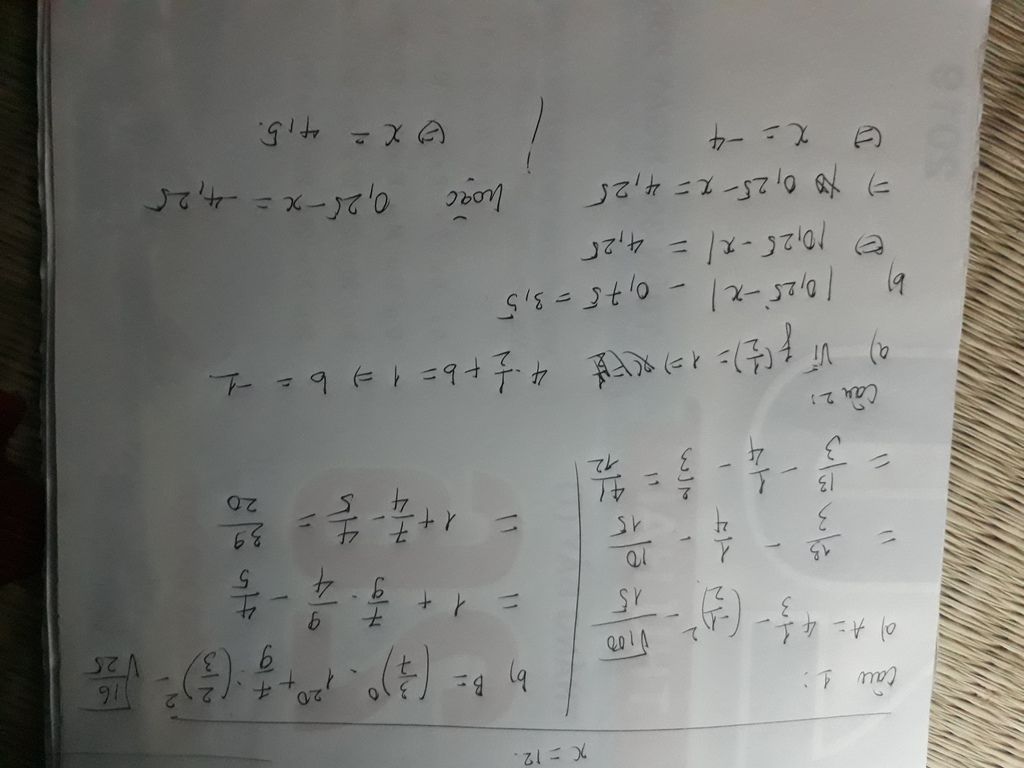 x = 12.
Câu 1:
a) A = 4 1/3 - (-1/2)² - √100/15
= 13/3 - 1/4 - 10/15
= 13/3 - 1/4 - 2/3 = 41/12
b) B = (3/7)⁰ . 1²⁰ + 7/9 : (2/3)² - √16/25
= 1 + 7/9 . 9/4 - 4/5
= 1 + 7/4 - 4/5 = 39/20
Câu 2:
a) Vì f(1/2) = 1 => 4.1/2 + b = 1 => b = -1
b) |0,25 - x| - 0,75 = 3,5
(=) |0,25 - x| = 4,25
=> 0,25 - x = 4,25 hoặc 0,25 - x = -4,25
(=) x = -4 (=) x = 4,5.